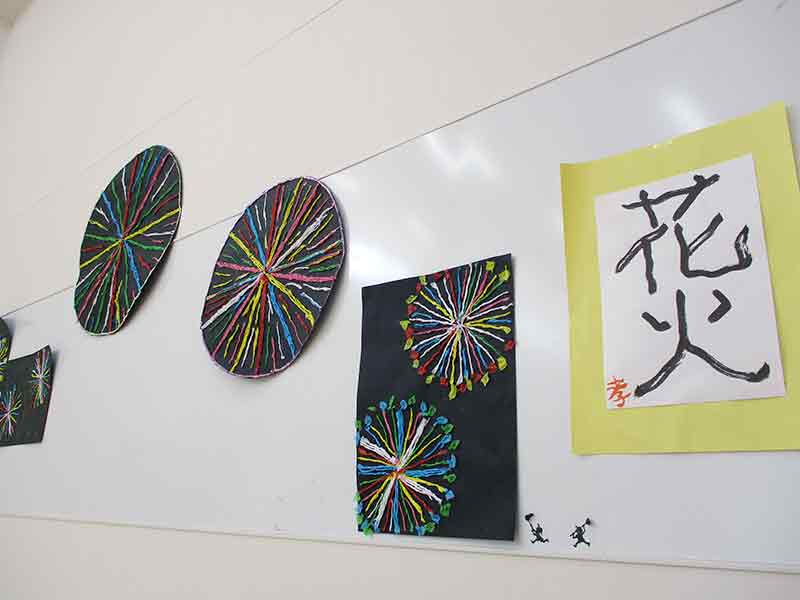 花
火
孝